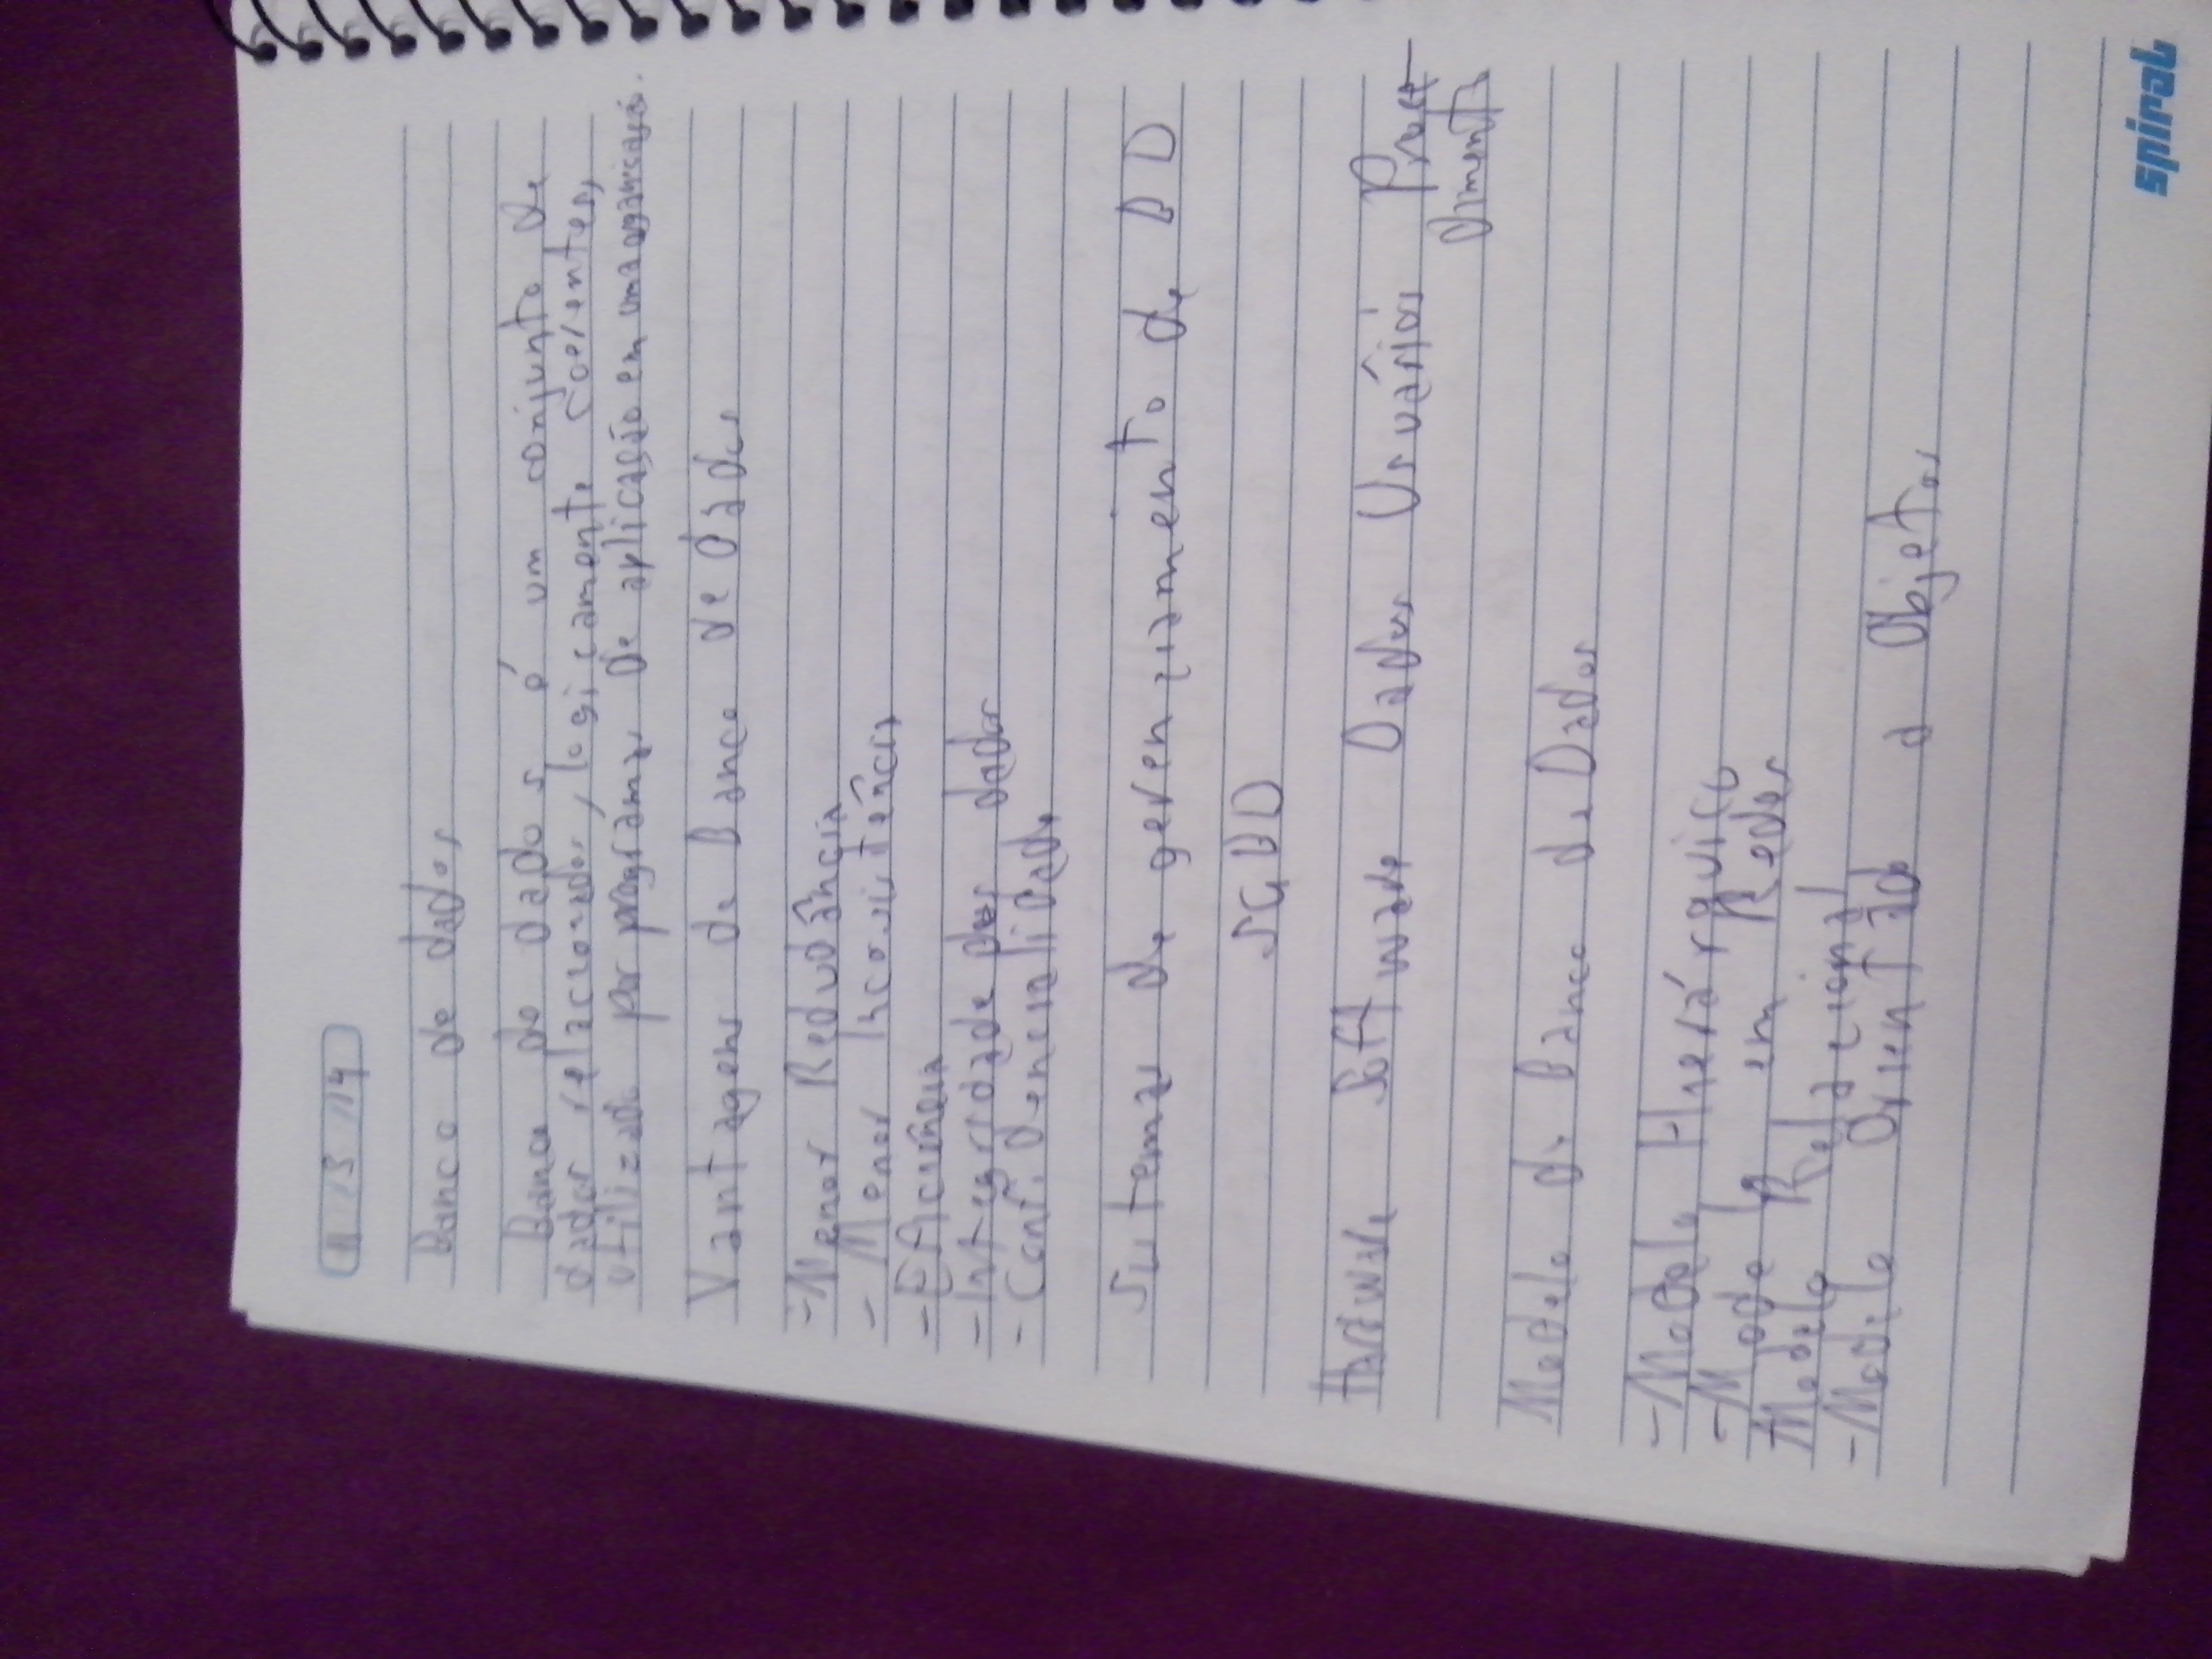 11 / 3 / 14
Banco de dados
Banco de dados é um conjunto de
dados relacionados, logicamente coerentes,
utilizado por programas de aplicação em uma organização.
Vantagens de Banco de Dados
- Menor Redudância
- Menor Inconsistência
- Eficiência
- Integridade dos dados
- Confidencialidade
Sistemas de gerenciamento de BD
SGBD
Hardware Software Dados Usuários Proce-
dimento
Modelo de Banco de Dados
- Modelo Hierárquico
- Modelo em Redes
Modelo Relacional
- Modelo Orientado a Objetos
spiral